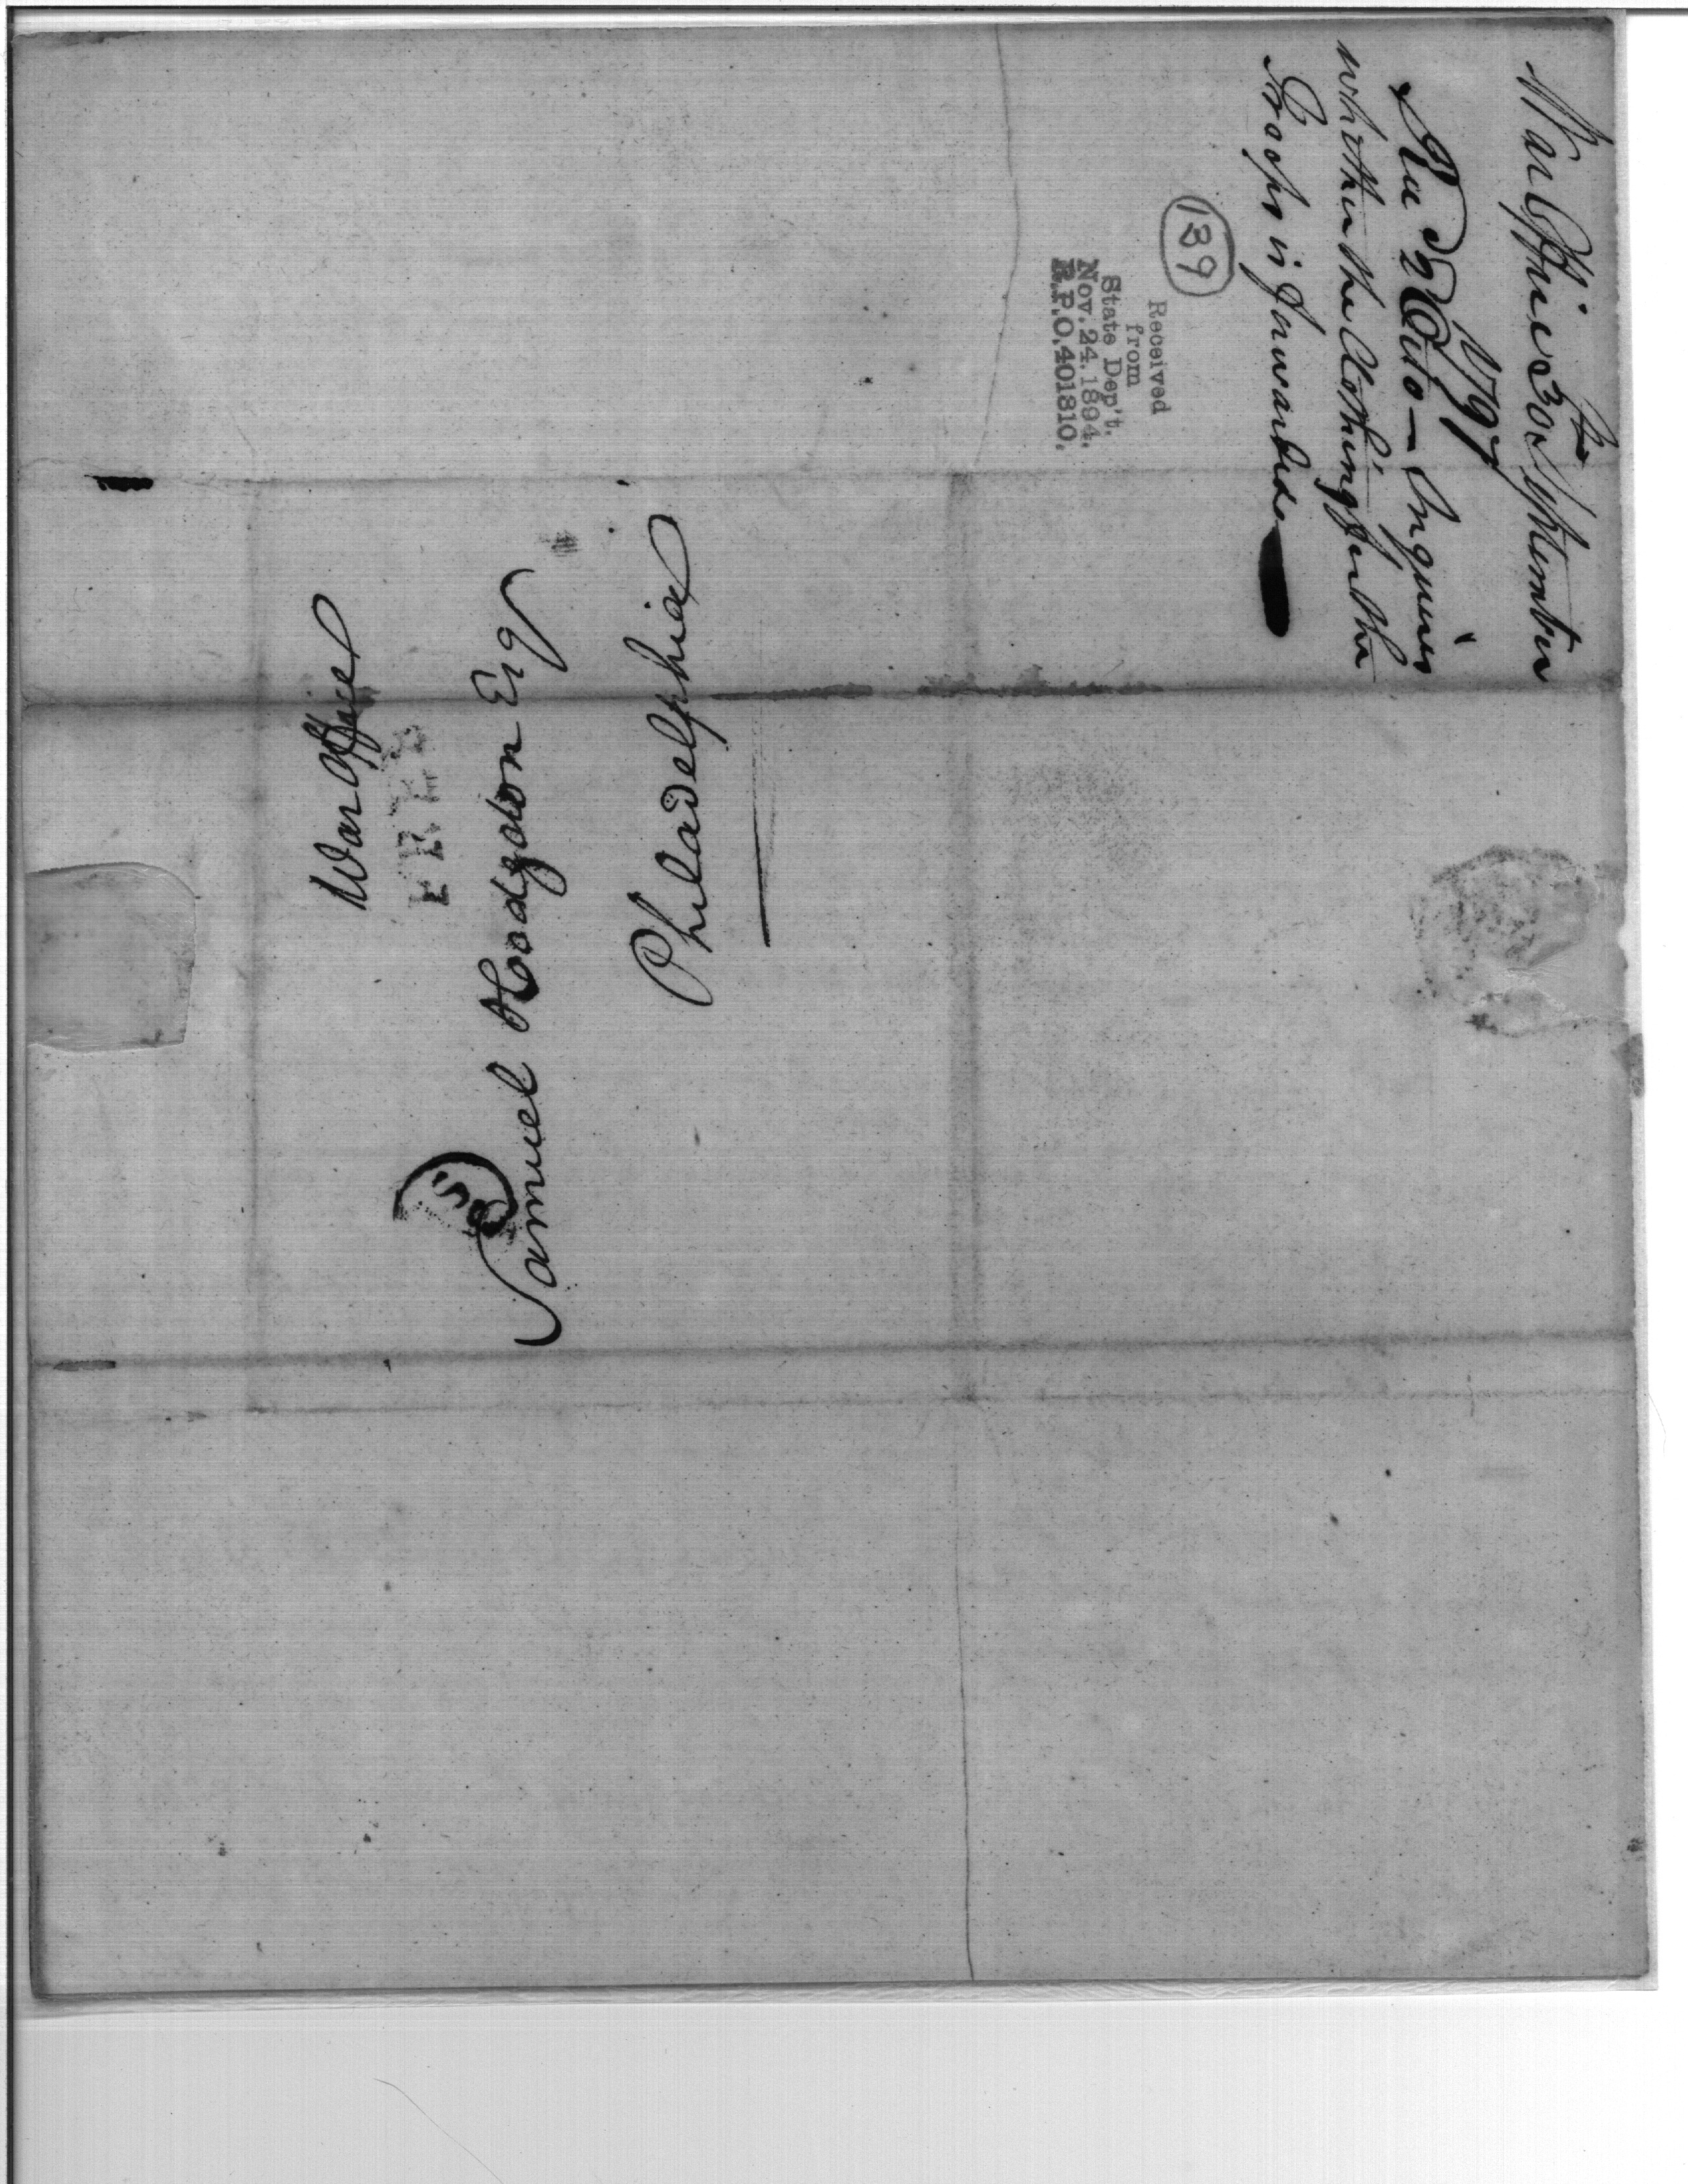 War Office 30th September
1797
Rec 2d Octo — Inquires
whether the Clothing for the
Troops is forwarded
139
Received
from
State Dep't.
Nov. 24. 1894.
R.P.O. 401810.
War Office
FREE
Samuel Hodgdon Esq
Philadelphia